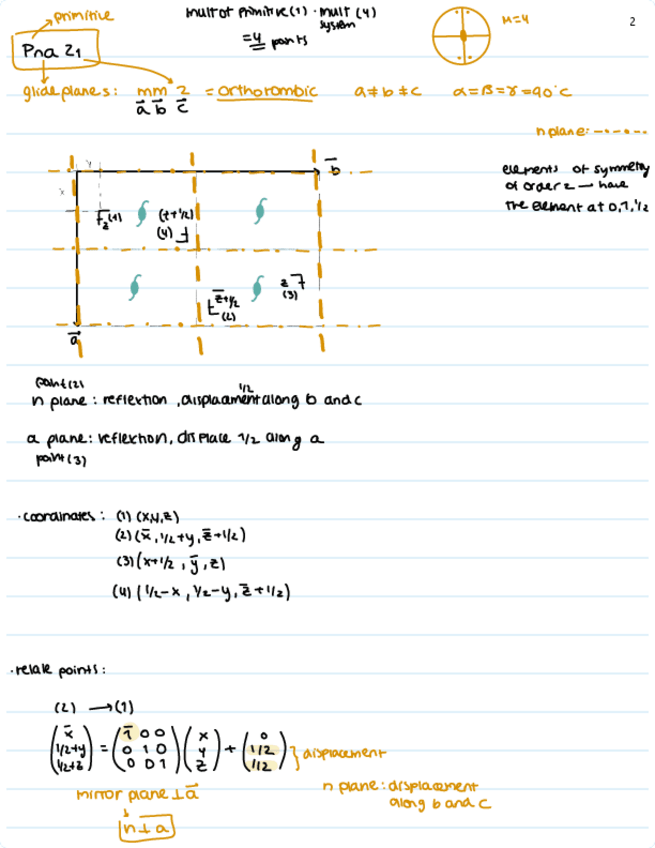 primitive
mult of primitive(1) · mult (4)
system
=4 points
M=4
2
Pna 2₁
glide planes: mm 2 = orthorombic a≠b≠c α=β=γ=90°C
a⃗ b⃗ c⃗
n plane: -·-·-·-
elements of symmetry
of order 2 → have
the element at 0,1,1/2
b⃗
y
x
z (1)
(z+1/2)
(4)
z
(3)
z̄+1/2
(2)
a⃗
point(2)
n plane: reflextion, displacament 1/2 along b and c
a plane: reflextion, displace 1/2 along a
point(3)
·coordinates: (1) (x,y,z)
(2)(x̄, 1/2+y, z̄+1/2)
(3)(x+1/2, ȳ, z)
(4) (1/2-x, 1/2-y, z̄+1/2)
·relate points:
(2) → (1)
(x̄ 1/2+y 1/2+z) = (1̄ 0 0 0 1 0 0 0 1) (x y z) + (0 1/2 1/2) } displacement
mirror plane ⊥ a⃗
n ⊥ a
n plane: displacement
along b and c